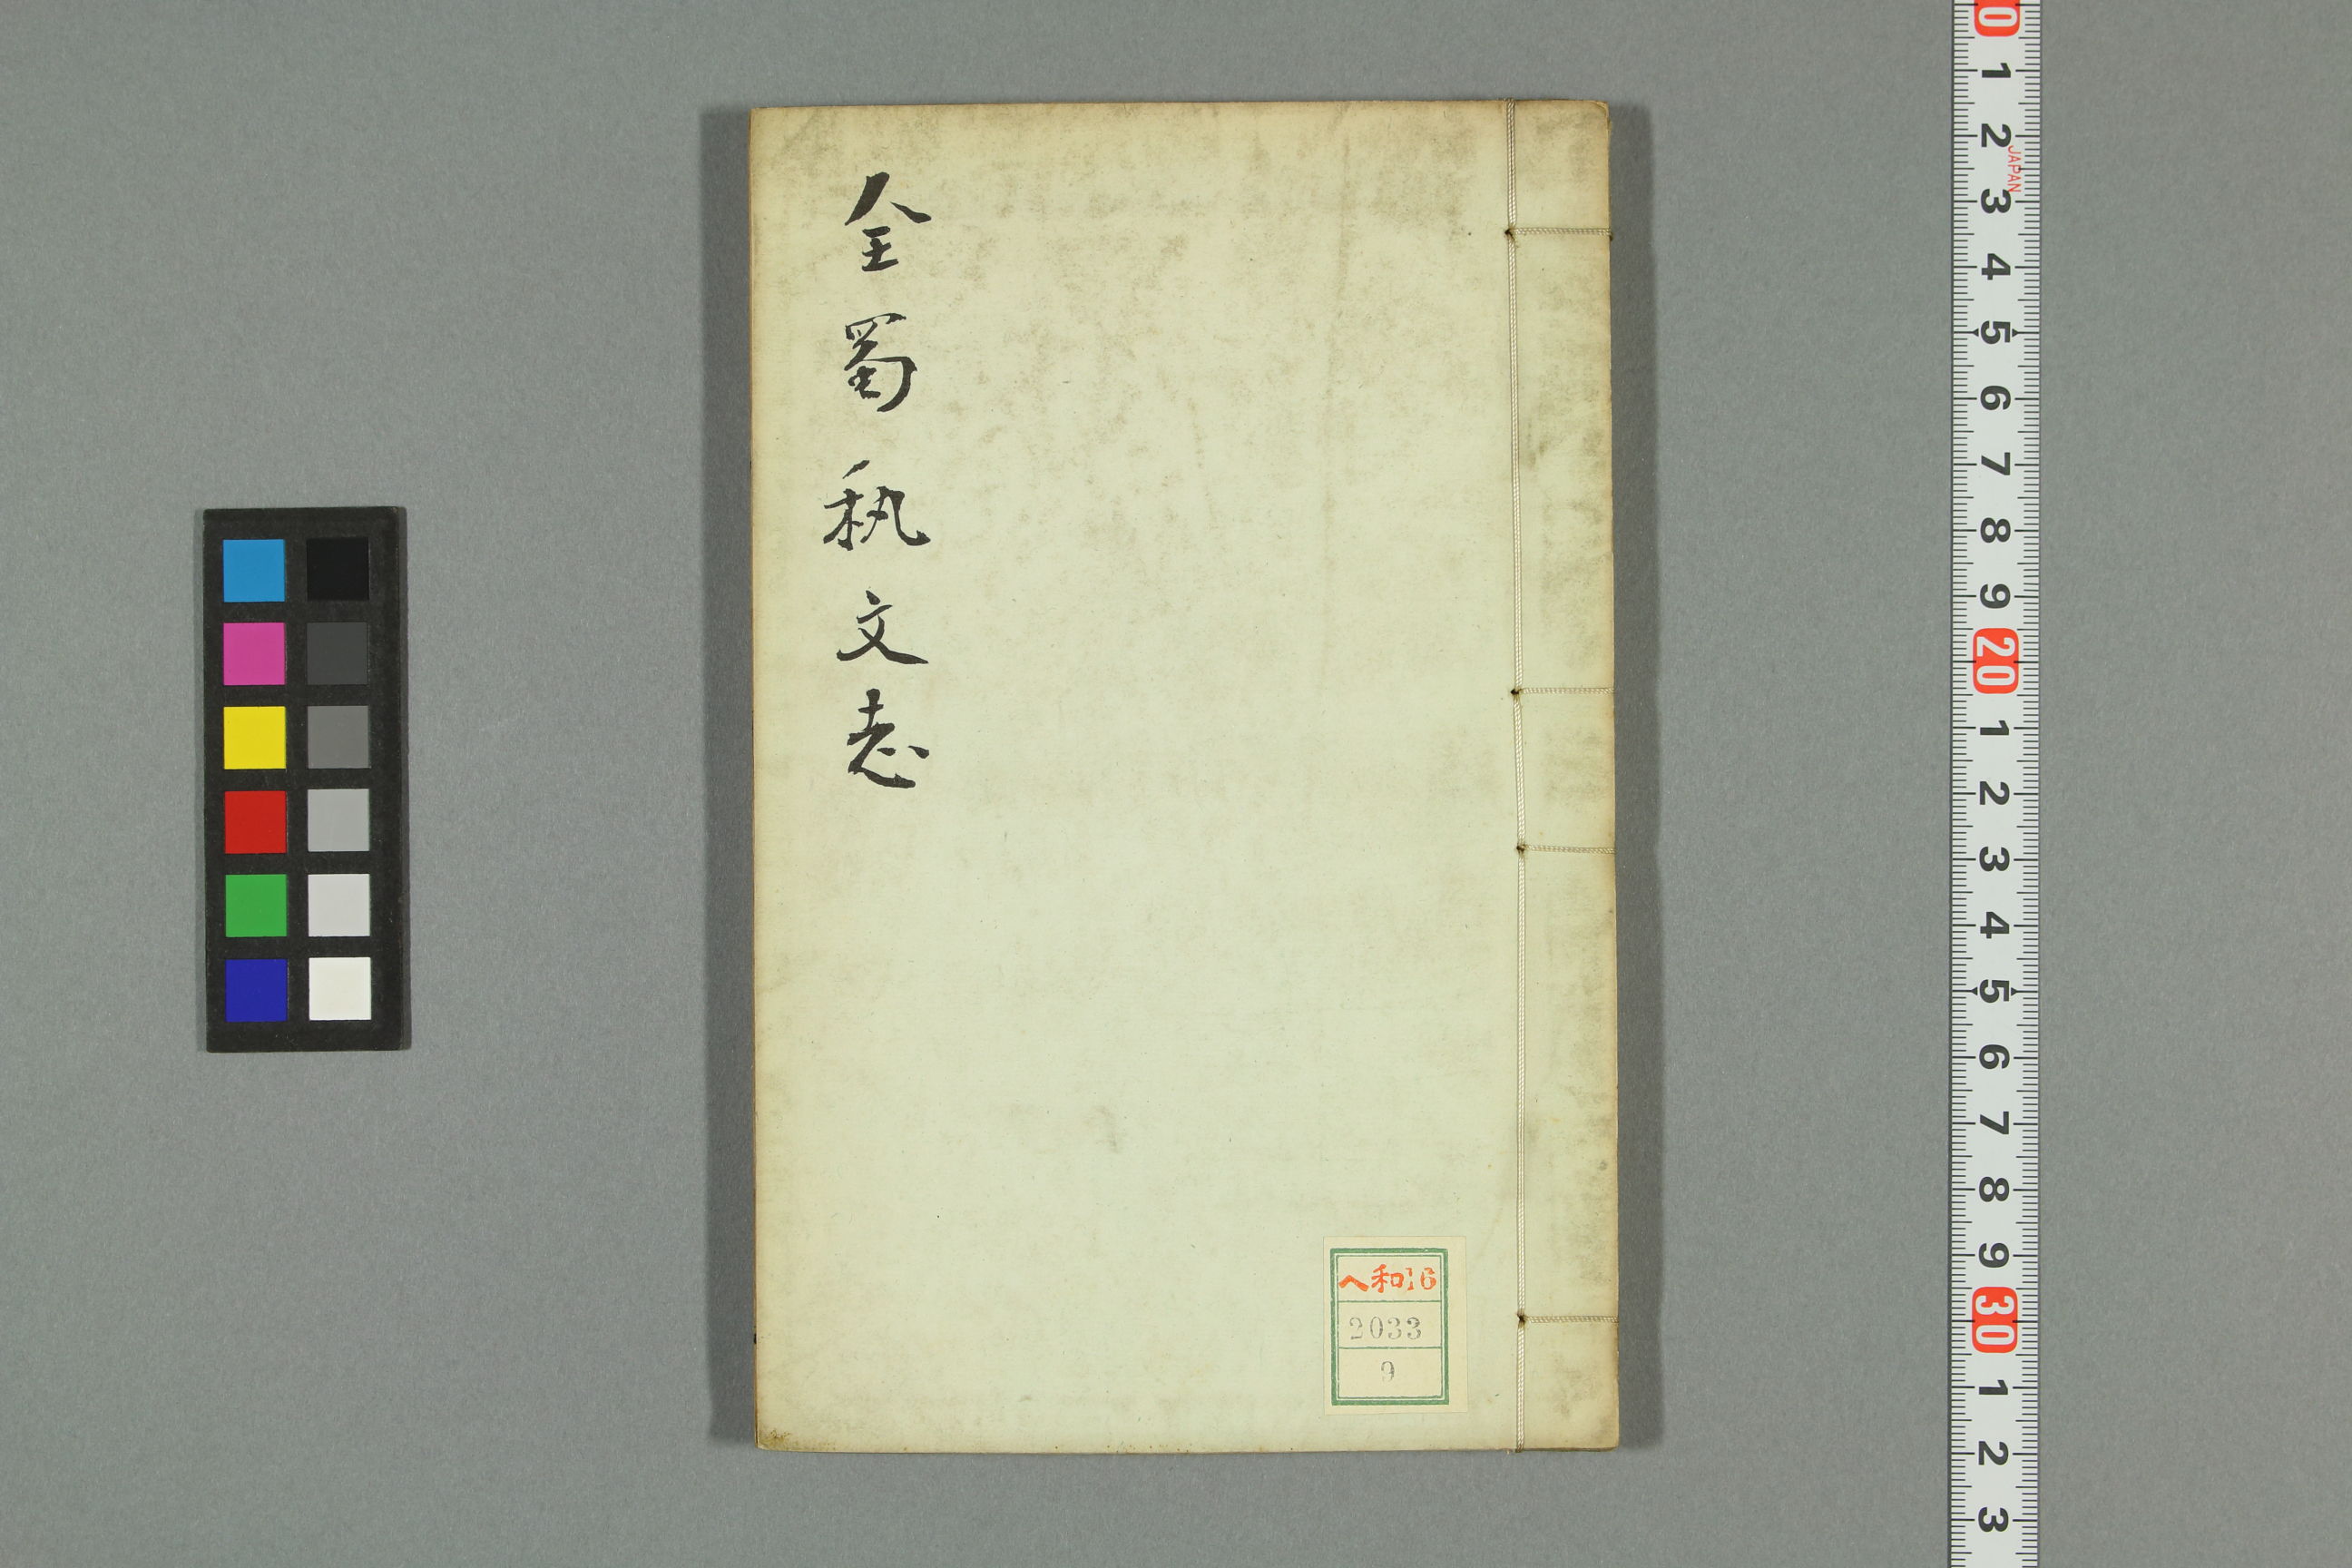 全蜀秇文志
ヘ和16
2033
9
0 1 2 3 4 5 6 7 8 9 20 1 2 3 4 5 6 7 8 9 30 1 2 3
JAPAN